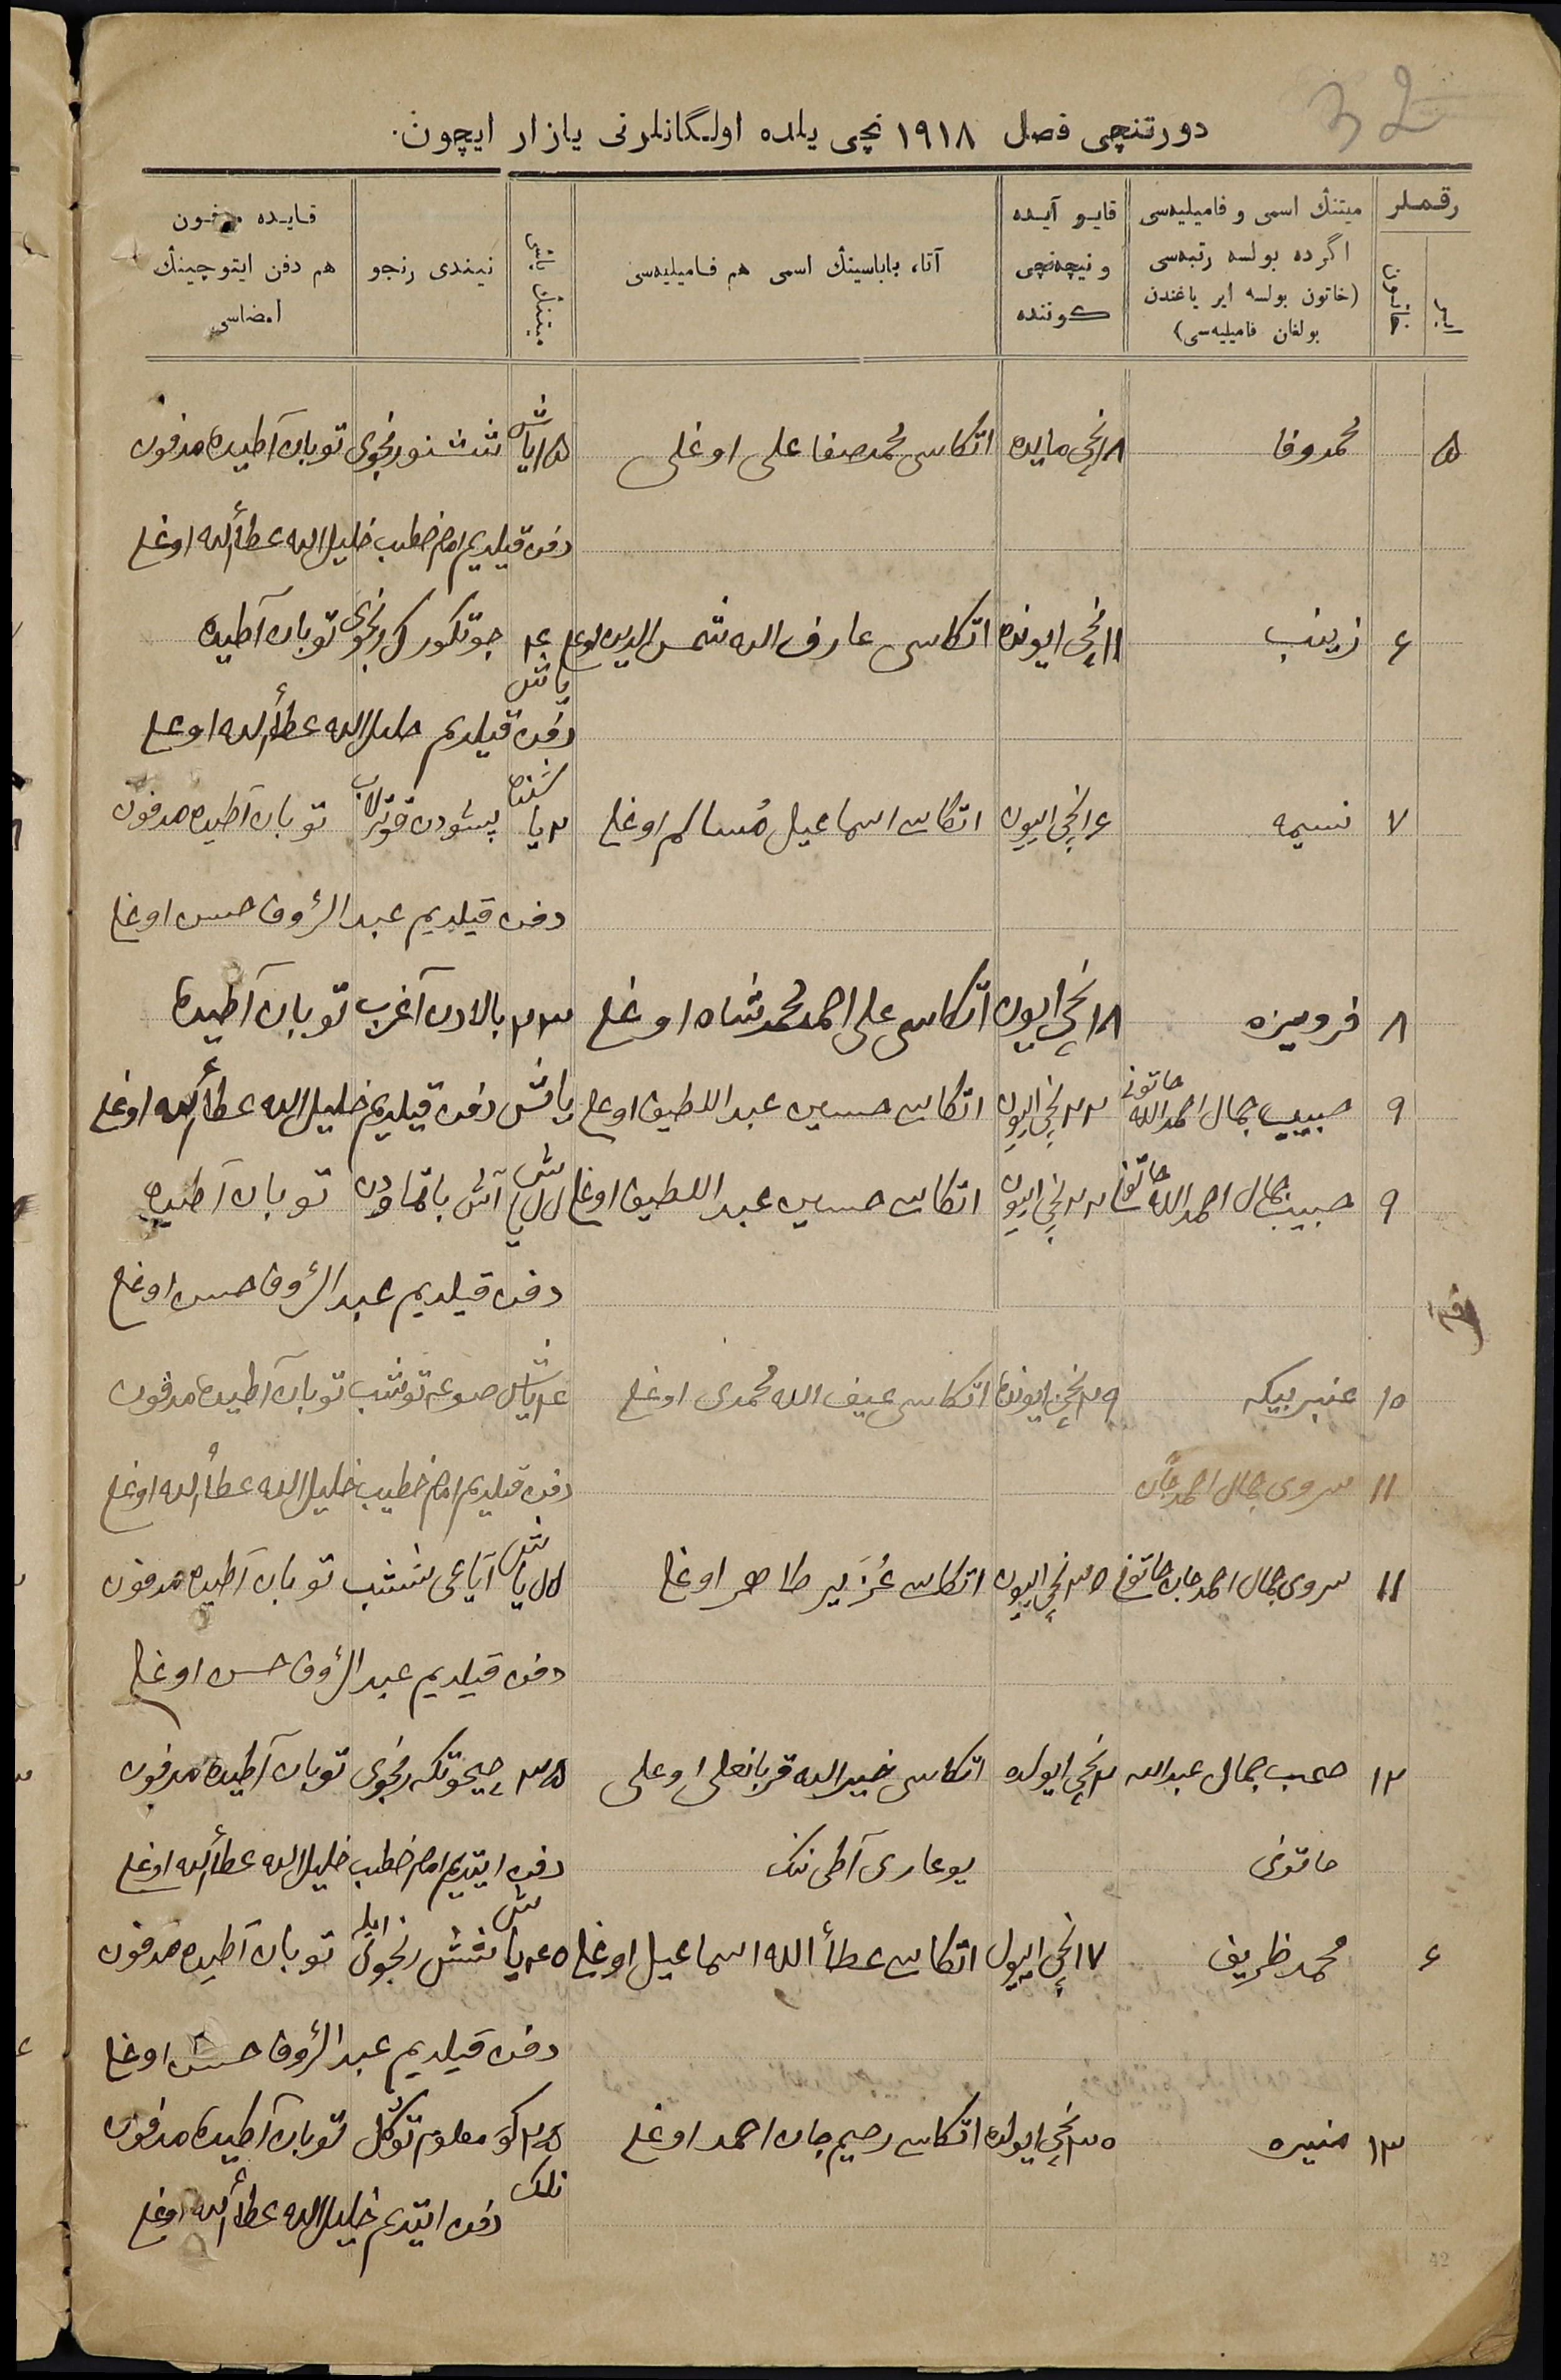 32
دورتنچی فصل ١٩١٨ نچی یلده اولگانلرنی یازار ایچون.
رقملر
ایرلر
خاتونلر
میتنڭ اسمی و فامیلیه‌سی اگرده بولسه رتبه‌سی (خاتون بولسه ایر یاغندن بولغان فامیلیه‌سی)
قایو آیده و نیچه‌نچی کوننده
آتا، باباسینڭ اسمی هم فامیلیه‌سی
میتنڭ یاشی
نیندی رنجو
قایده مدفون هم دفن ایتوچینڭ امضاسی
۵ محمدوفا ١٨نچی مایده اتکاسی محمدصفا علی اوغلی ١۵ یاش شش نور رنجوی توبان آطیده مدفون
دفن قیلدیم امام خطیب خلیل الله عطأالله اوغلی
۶ زینب ١١نچی ایونده اتکاسی عارف الله شمس الدین اوغلی ۴ یاش جوتکورک رنجوی توبان آطیده
دفن قیلدیم خلیل الله عطأالله اوغلی
۷ نسیمه ١۶نچی ایون اتکاسی اسماعیل مسالم اوغلی ٢ یا توبان آطیده مدفون
دفن قیلدیم عبدالرؤف حسن اوغلی
۸ فرومیزه ١٨نچی ایون اتکاسی علی احمد محمدشاه اوغلی ٢٣ بالادن آغرب توبان آطیده
۹ حبیب جمال احمدالله خاتونی ٢٢نچی ایون اتکاسی حسین عبداللطیف اوغلی یاش دفن قیلدیم خلیل الله عطأالله اوغلی
۹ حبیب جمال احمدالله خاتونی ٢٢نچی ایون اتکاسی حسین عبداللطیف اوغلی ۵۵ یاش آش باتماودن توبان آطیده
دفن قیلدیم عبدالرؤف حسن اوغلی
١٠ عنبر بیکه ٢٩نچی ایونده اتکاسی عیف الله محمدی اوغلی ۴ یاش صوغه توشب توبان آطیده مدفون
١١ سروی جمال احمدجان دفن قیلدیم امام خطیب خلیل الله عطأالله اوغلی
١١ سروی جمال احمدجان خاتونی ٣٠نچی ایون اتکاسی عُزَیر طاهر اوغلی ۵۵ یاش آیاغی ششب توبان آطیده مدفون
دفن قیلدیم عبدالرؤف حسن اوغلی
١٢ صحب جمال عبدالله ٢نچی ایولده اتکاسی خیرالله قربانعلی اوغلی ٣۵ چیحوتکه رنجوی توبان آطیده مدفون
خاتونی یوغاری آطی ننک دفن ایتدیم امام خطیب خلیل الله عطأالله اوغلی
۶ محمد ظریف ١٧نچی ایول اتکاسی عطأ الله اسماعیل اوغلی ۴۵ یاش شش رنجوی ایله توبان آطیده مدفون
دفن قیلدیم عبدالرؤف حسن اوغلی
١٣ منیره ٣٠نچی ایولده اتکاسی رحیم جان احمد اوغلی ٢۵ کونلک معلوم توگل توبان آطیده مدفون
دفن ایتدیم خلیل الله عطأالله اوغلی
42